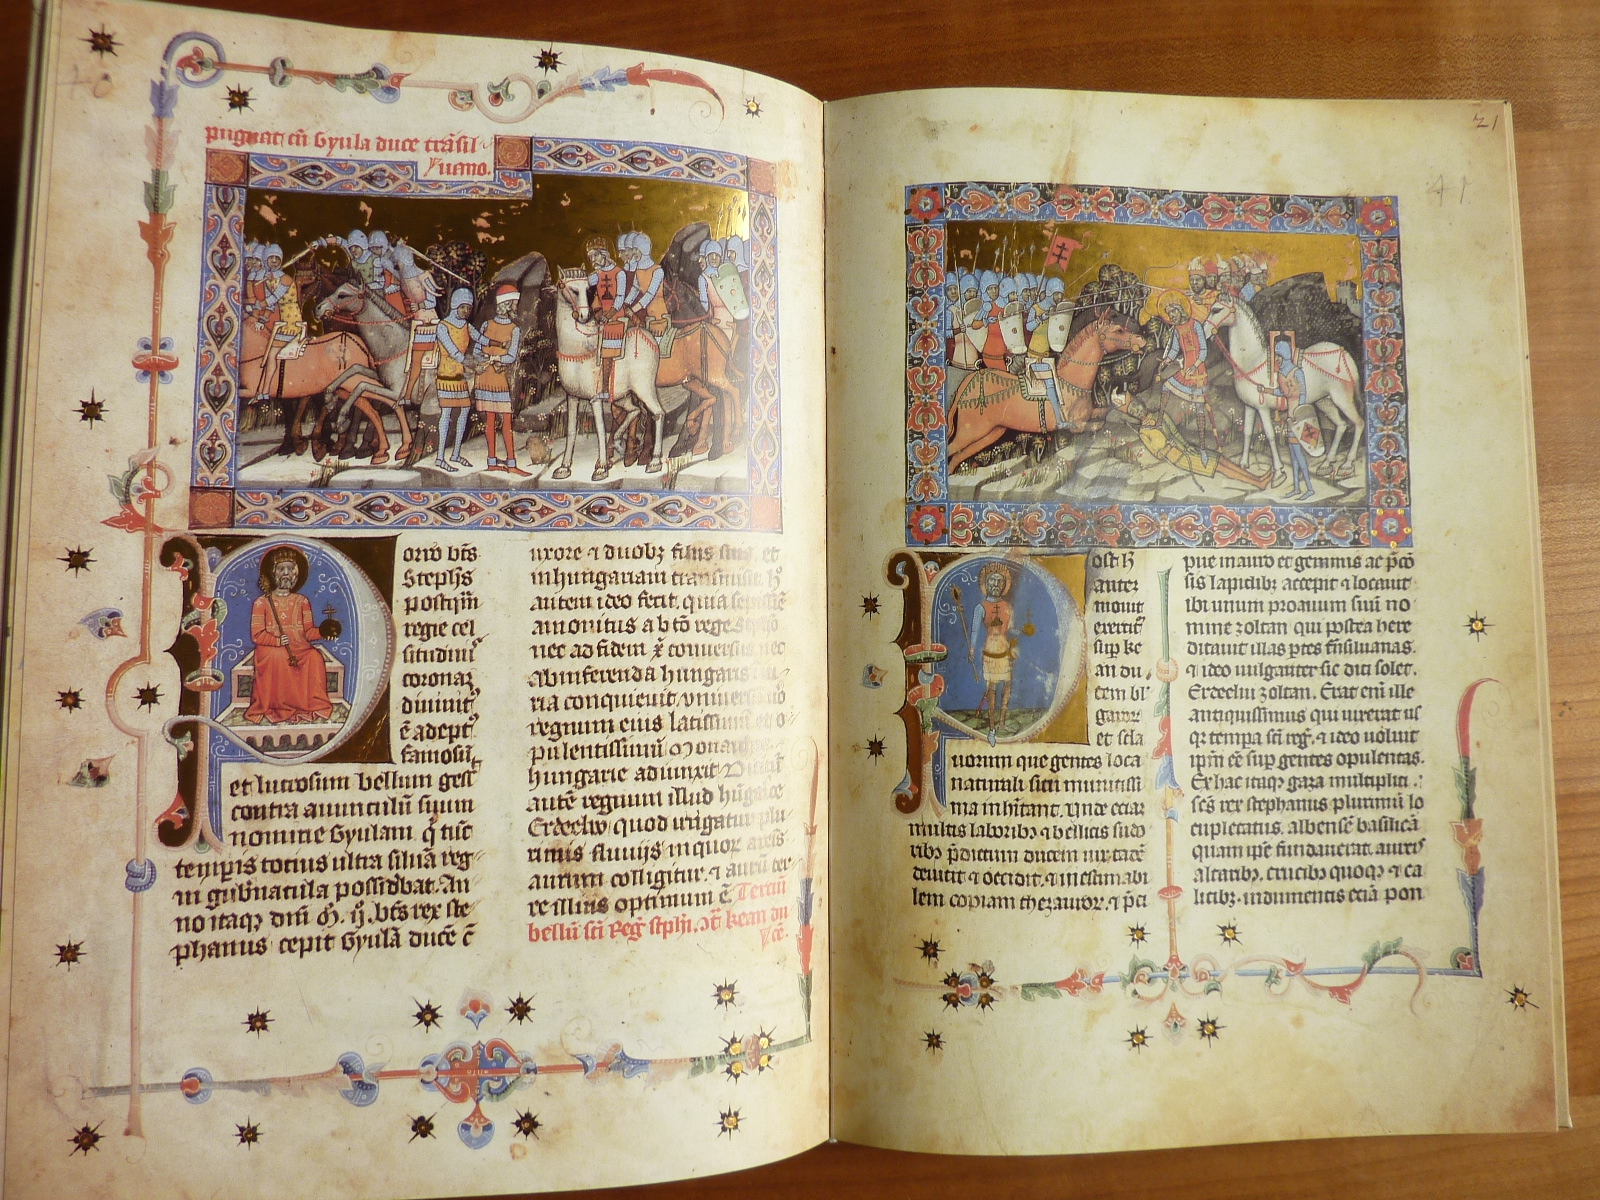 pugnat cū Gyula duce trāsil
uano.
orro bt̄s
Steph̄s
postq̄m
regie cel
situdinis
coronaz
diuinit9
ē adept9
famosū
et lucrosum bellum gess
contra auunculū suum
nomine Gyulam q̄ tūc
temp̄is totius ultra siluā reg
ni gub̄nacula possid̄bat. An
no itaqꝫ dn̄i M. ij. bt̄s rex ste
phanus cepit Gyulā ducē c̄
uxore ⁊ duobꝫ filiis suis et
in hungariam transmisit. h̄
autem ideo fecit. quia sepissīe
amonitus a bt̄o rege
nec ad fidem x̄ conuersus nec
ab inferenda hungaris
ria conquieuit. vniuersū
regnum eius latissimū et o
pulentissimū monarchie
hungarie adiunxit.
autē regnum illud hūgarice
Erdeelw quod irrigatur plu
rimis fluuijs in quor arenis
aurum colligitur. ⁊ aurū ter
re illius optimum ē. Terciū
bellū sc̄i Reḡ stph̄i. ꝯt̄ kean du
cē.
21
41
ost h̄
autez
mouit
exercitū
sup ke
an du
cem bl
garor
et scla
uorum que gentes loca
naturali situ munitissi
ma inh̄itant. Unde eciaz
multis laboribꝫ ⁊ bellicis sudo
ribꝫ p̄dictum ducem uix tandē
deuicit ⁊ occidit. ⁊ inestimabi
lem copiam thezauror. ⁊ p̄ci
pue in auro et gemmis ac p̄cio
sis lapidibꝫ accepit ⁊ locauit
ibi unum proauum suū no
mine zoltan qui postea here
ditauit illas p̄tes t̄nsiluanas.
⁊ ideo uulgariter sic dici solet.
Erdeelui zoltan. Erat eni ille
antiquissimus qui uixerat us
qꝫ tempa sc̄i reḡ. ⁊ ideo uoluit
ip̄m eē sup gentes opulentas.
Ex hac itaqꝫ gaza multiplici.
sc̄s rex stephanus plurimū lo
cupletatus. albensē basilicā
quam ip̄e fundauerat. aureis
altaribꝫ. crucibꝫ quoqꝫ ⁊ ca
licibꝫ. indumentis eciā pon